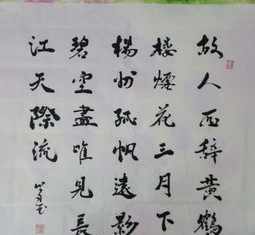 故人西辞黄鹤
楼煙花三月下
楊州孤帆遠影
碧空盡唯見長
江天際流